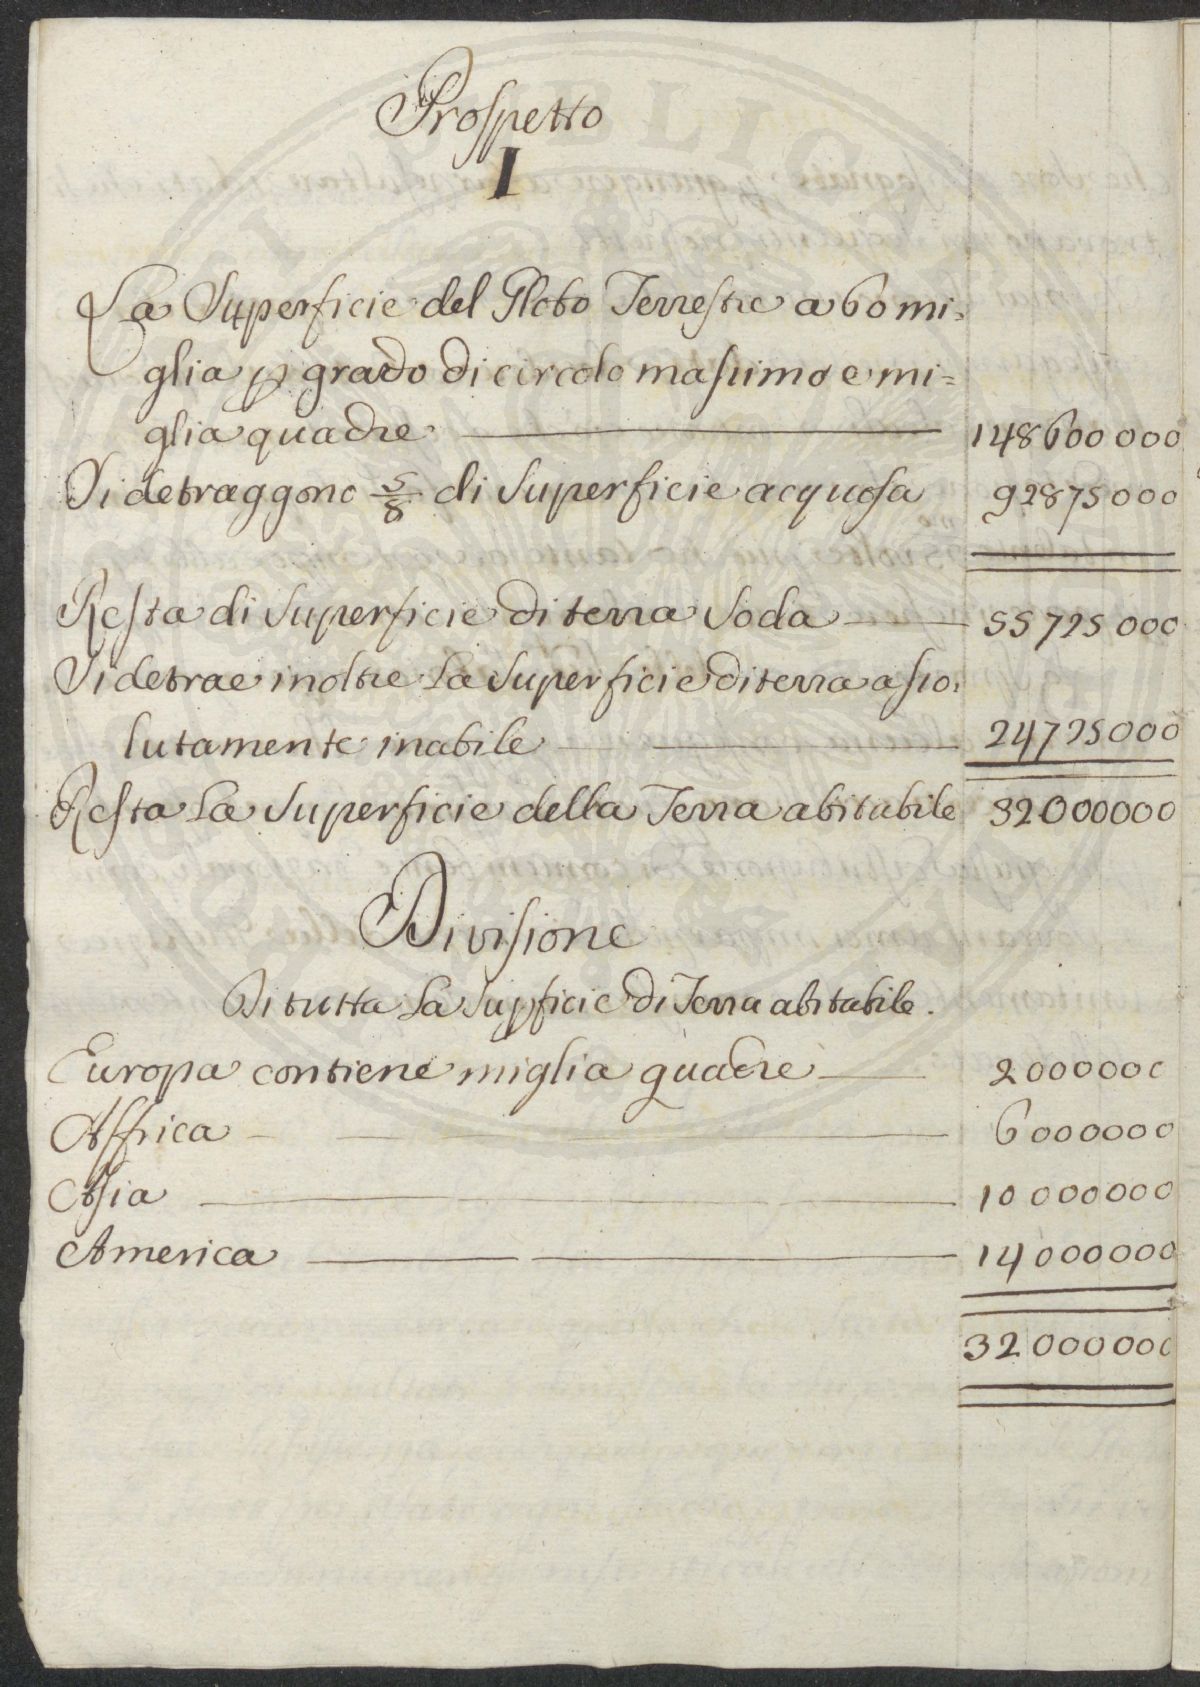 Prospetto
I
La Superficie del Globo Terrestre a 60 mi=
glia p grado di circolo massimo e mi=
glia quadre 148600000
Si detraggono 5/8 di Superficie acquosa 92875000
Resta di Superficie di terra Soda 55725000
Si detrae inoltre La Superficie di terra asso=
lutamente inabile 24725000
Resta La Superficie della Terra abitabile 32000000
Divisione
Di tutta La Supficie di Terra abitabile.
Europa contiene miglia quadre 2000000
Affrica 6000000
Asia 10000000
America 14000000
32000000